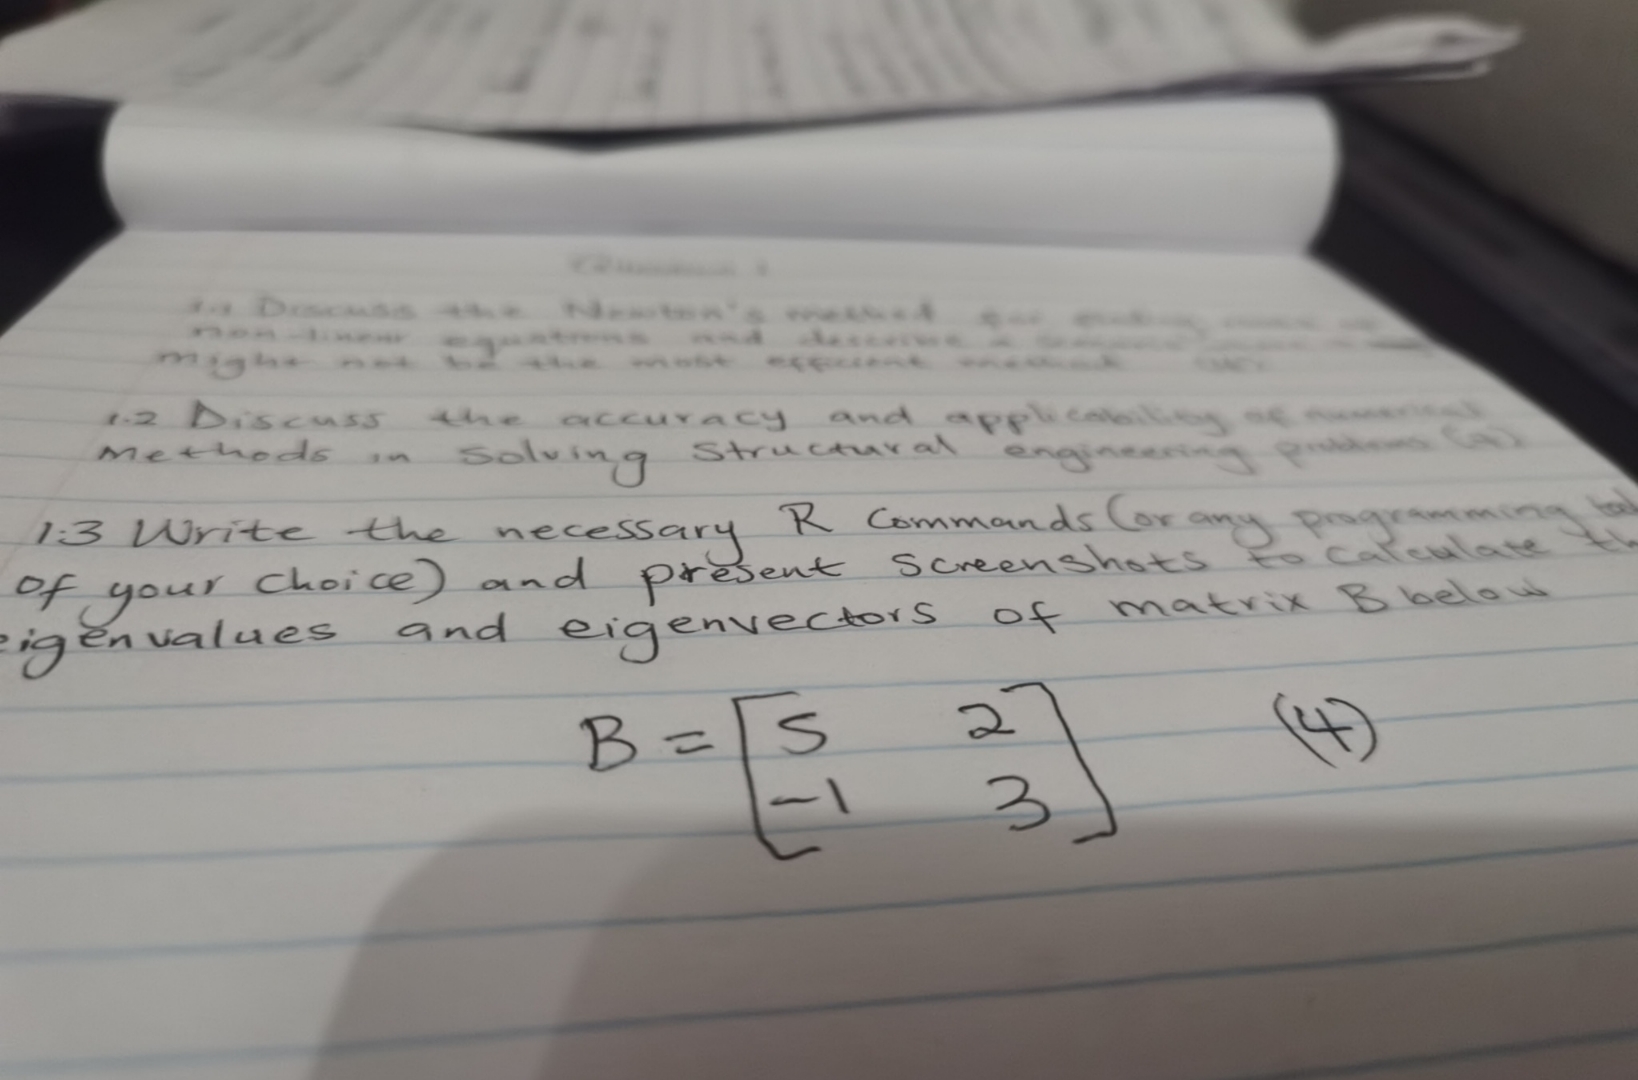 Question 1
1.1 Discuss the Newton's method for finding
non-linear equations and describe a
might not be the most efficient method
1.2 Discuss the accuracy and applicability of numerical
methods in solving structural engineering problems
1.3 Write the necessary R Commands (or any programming
of your choice) and present screenshots to calculate the
eigenvalues and eigenvectors of matrix B below
B = [5 2
-1 3] (4)